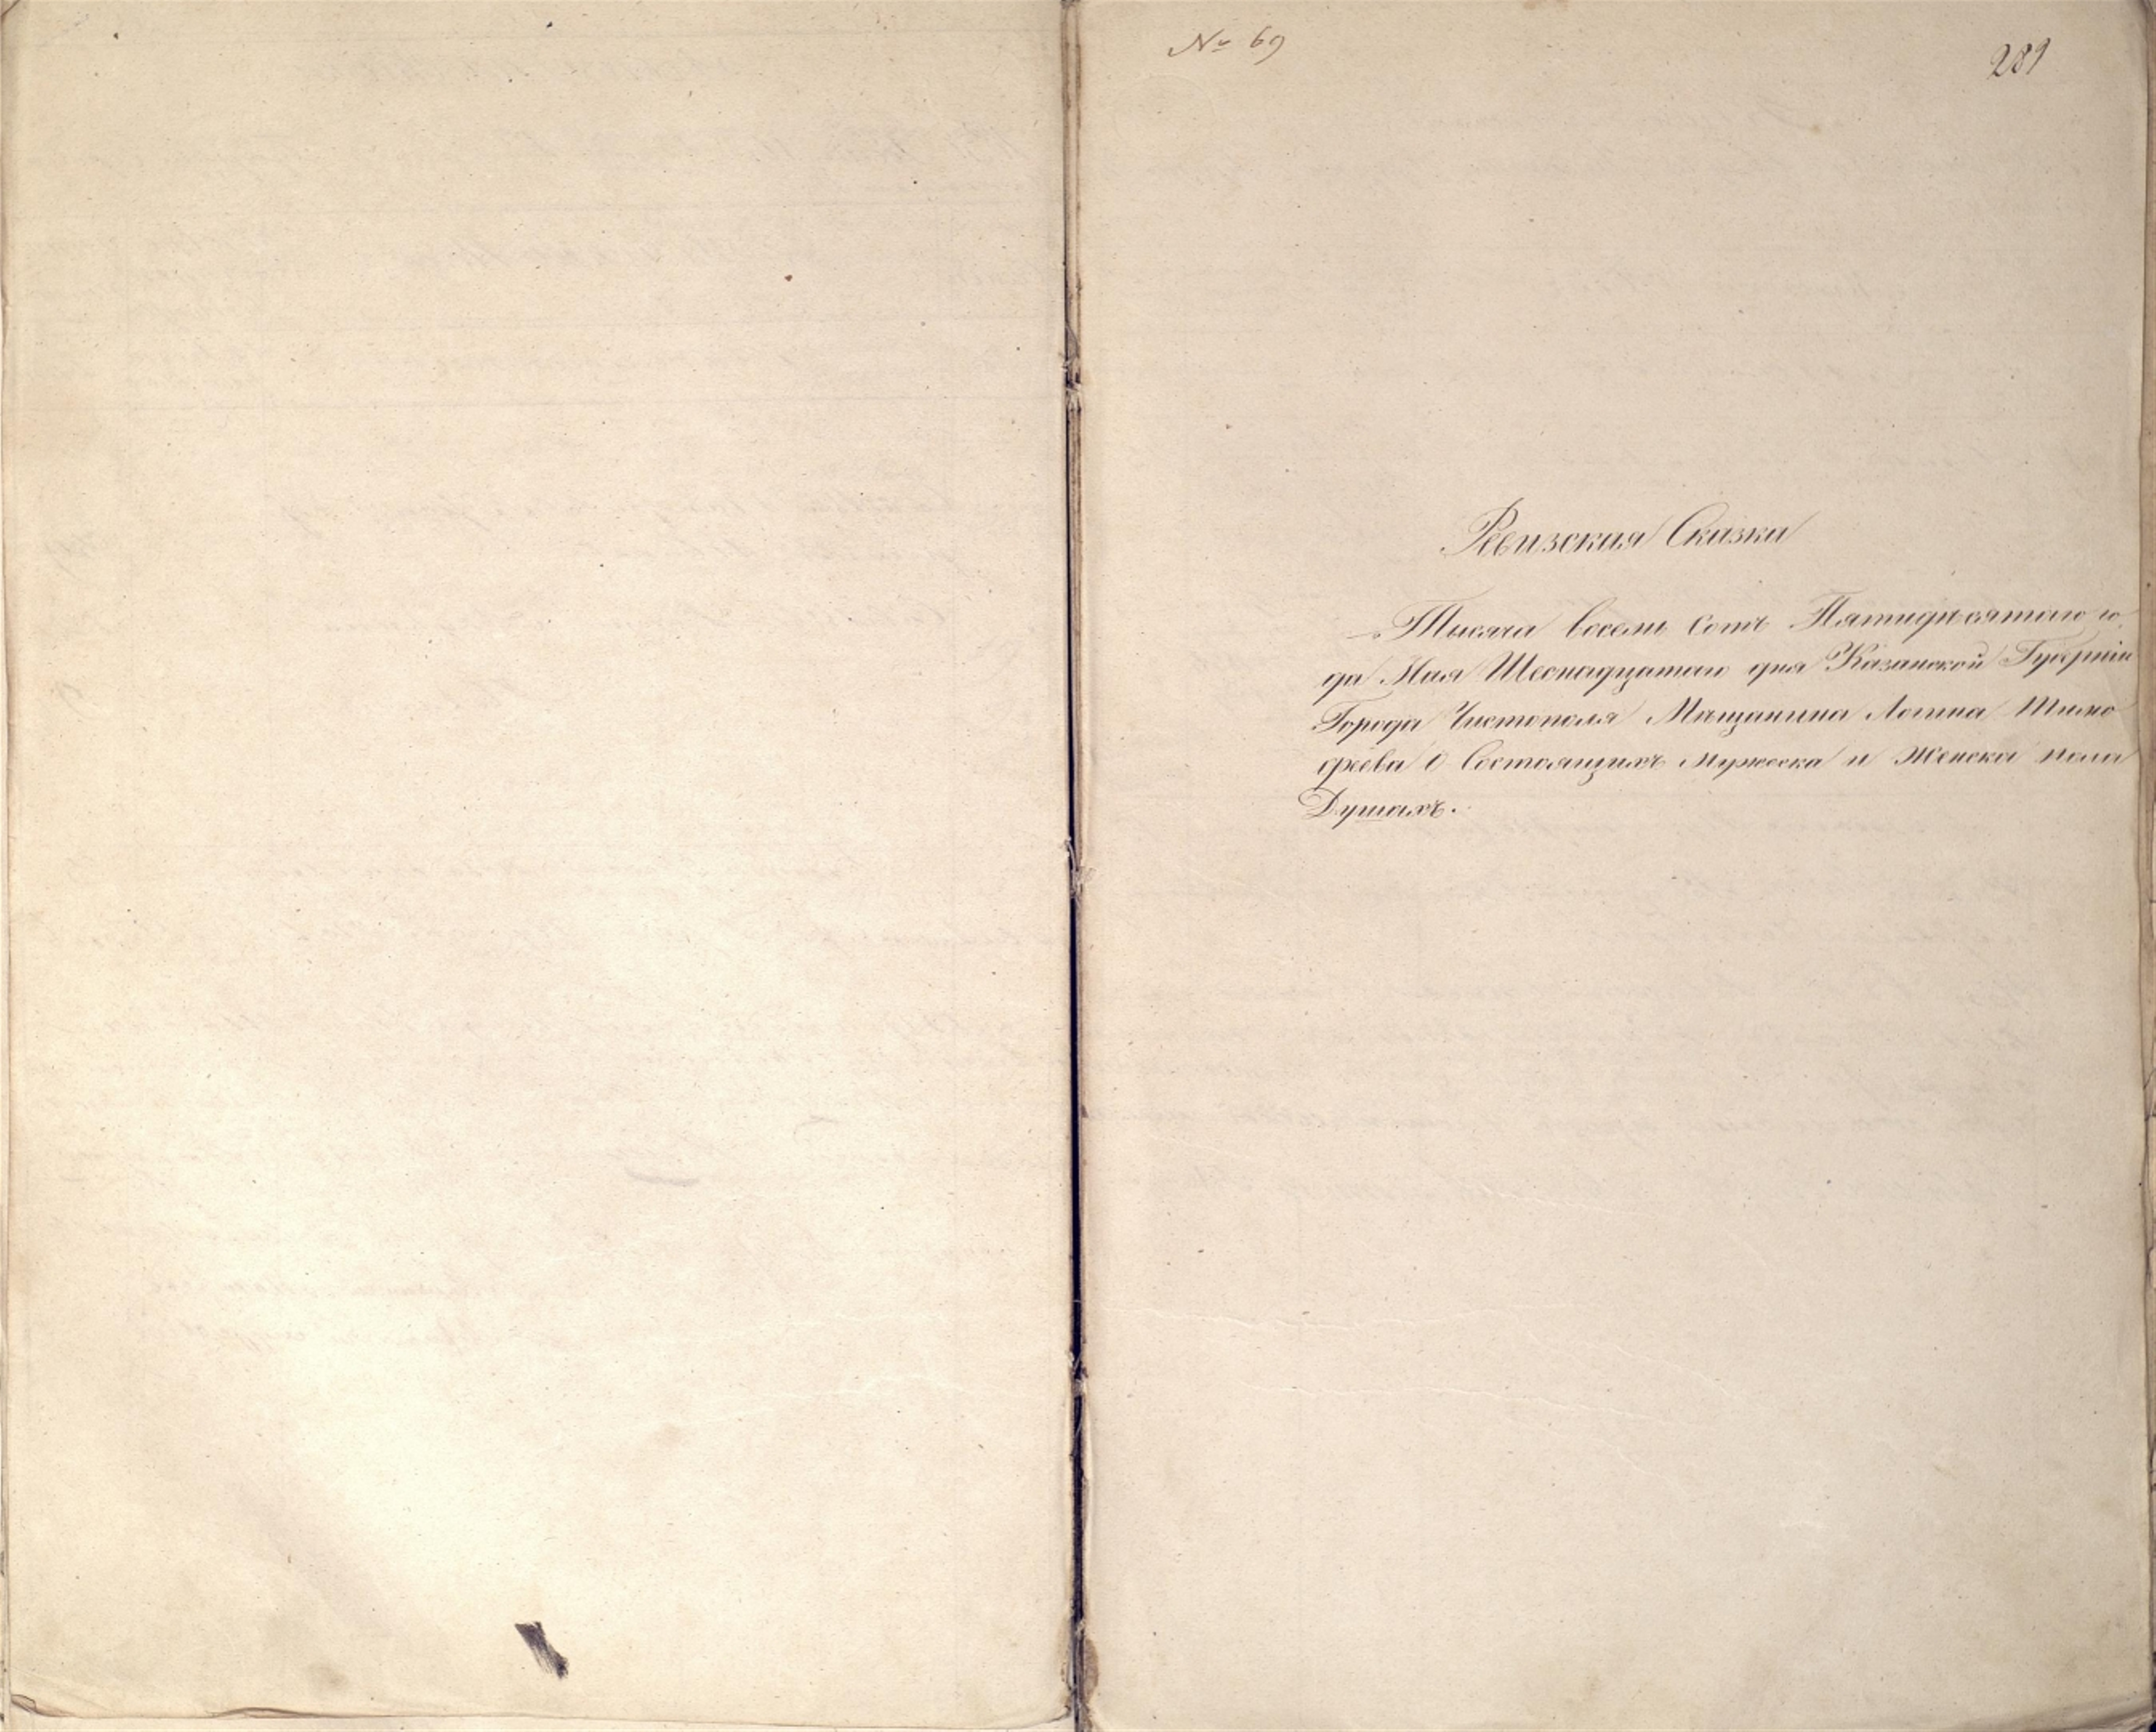 № 69
281
Ревизская Сказка
Тысяча восемь сотъ Пятидѣсятаго го-
да Мая Шеснадцатаго дня Казанской Губерніи
Города Чистополя Мѣщанина Логина Тимо-
феева о Состоящихъ мужеска и женска пола
Душахъ.